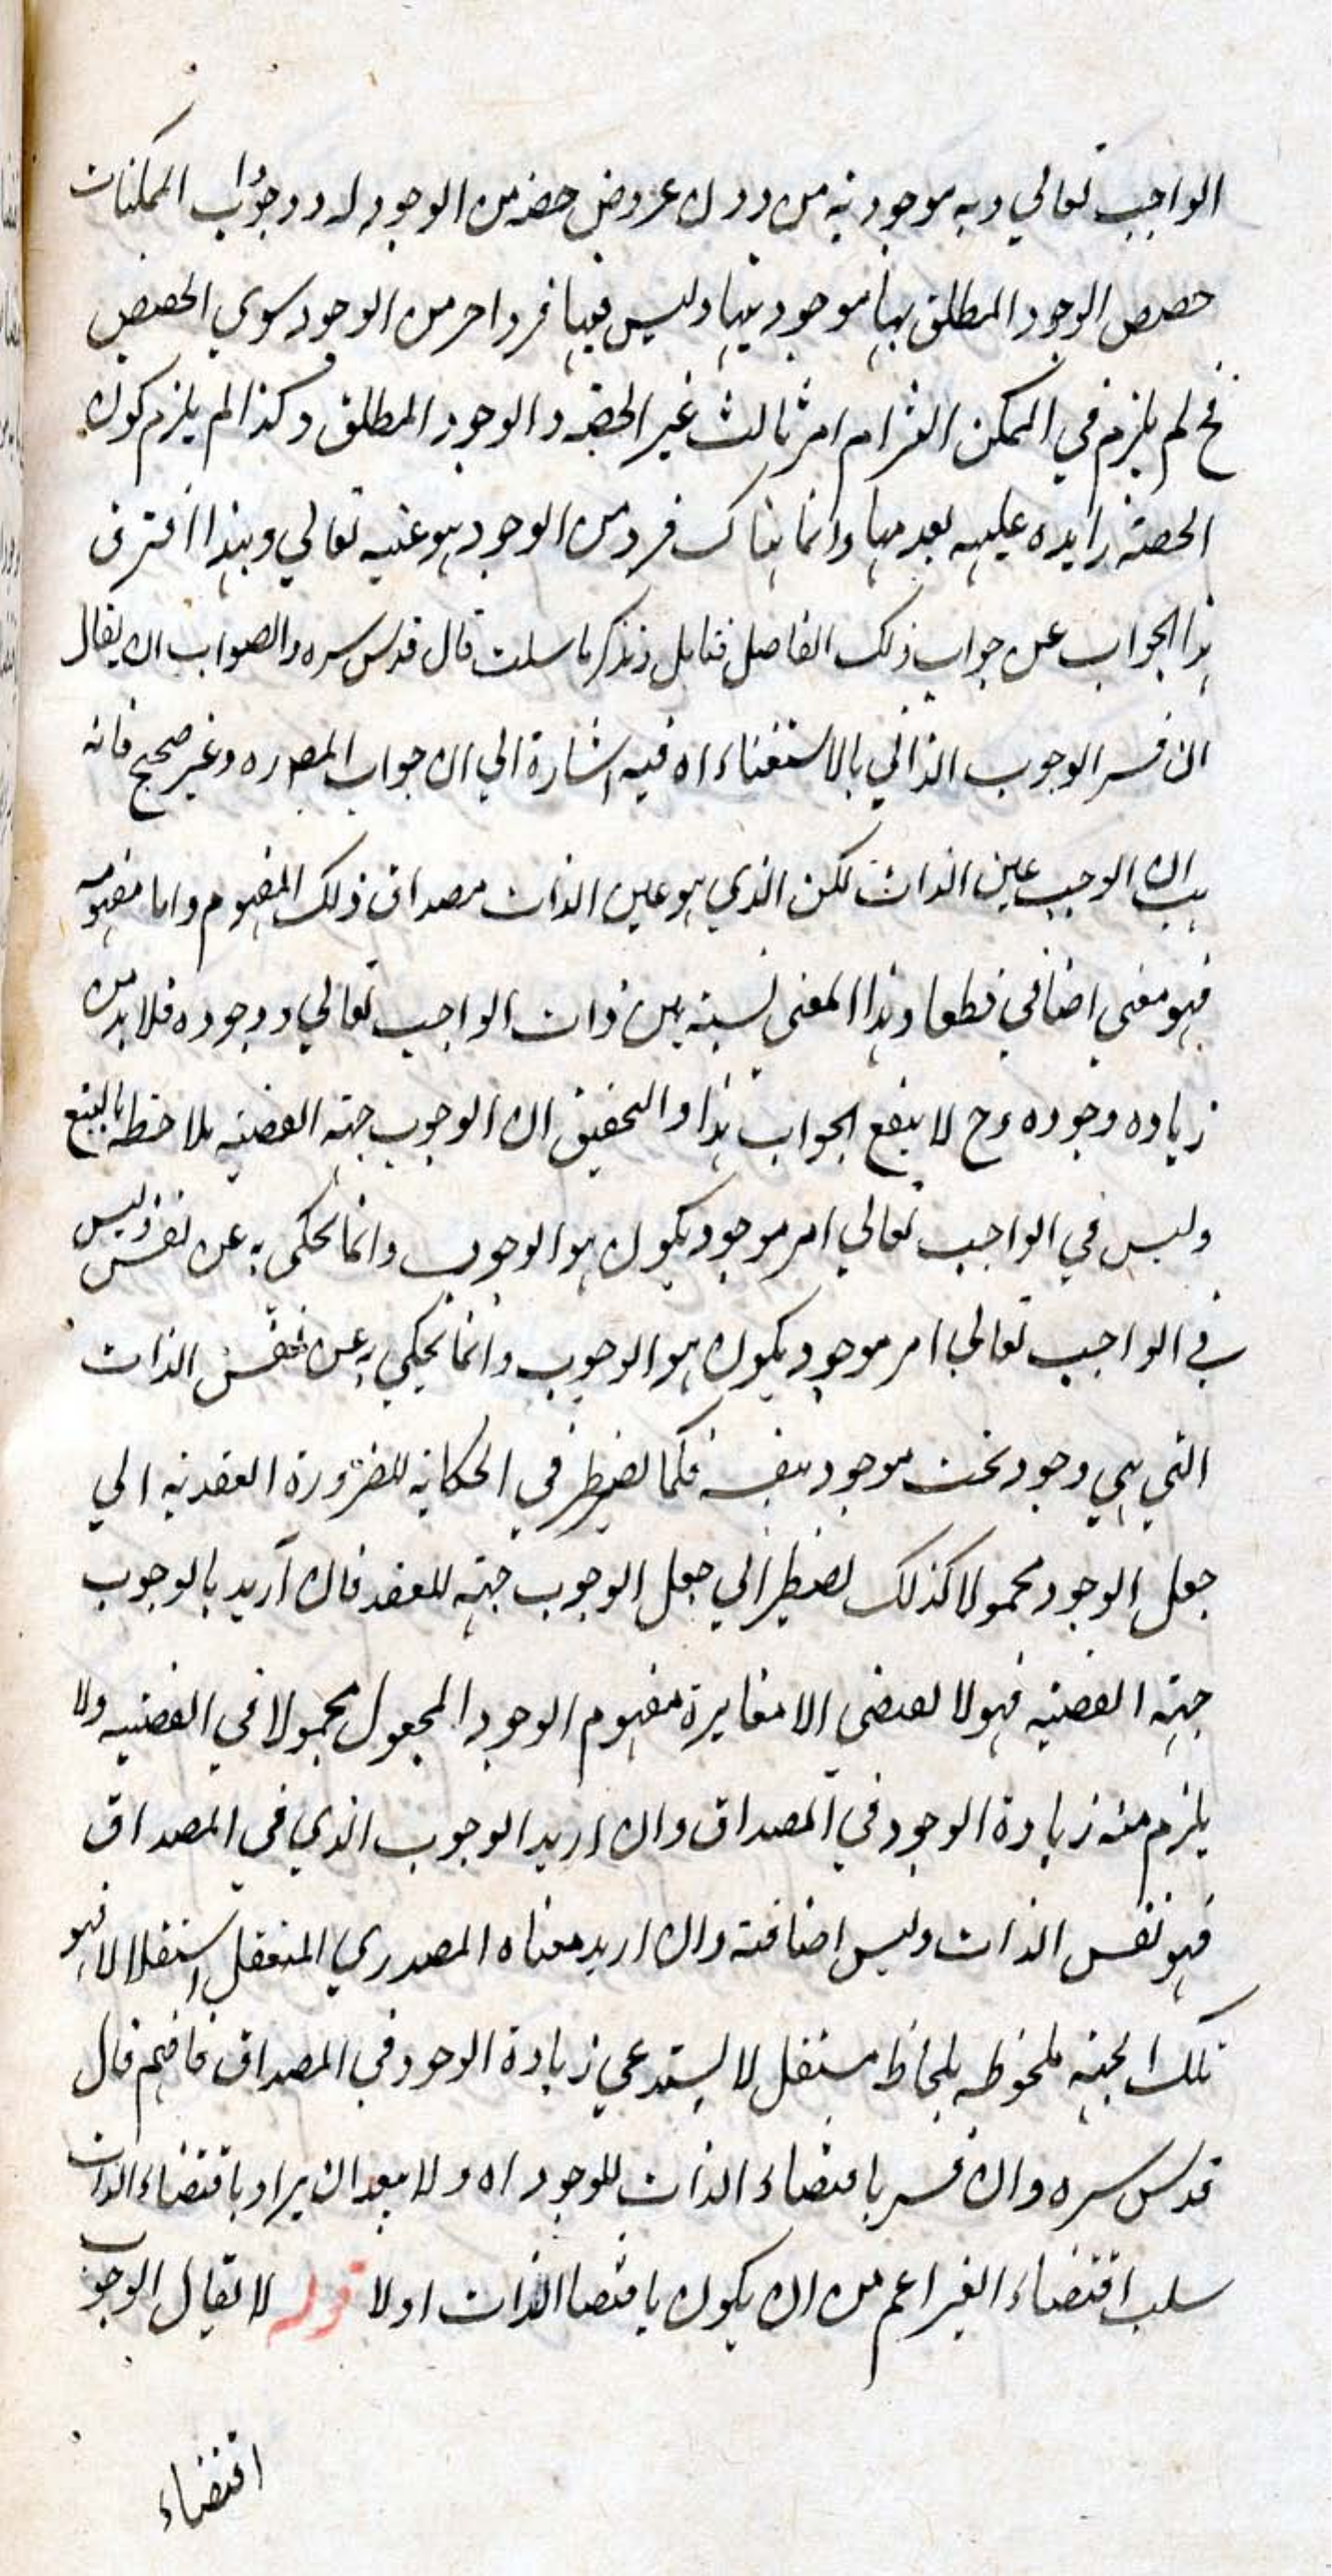 الواجب تعالي وبه موجوديته من دون عروض حصه من الوجود له ووجودات الممكنات
حصص الوجود المطلق بها موجوديتها وليس فيها فرد اخر من الوجود سوي الحصص
فح لم يلزم في الممكن التزام امر ثالث غير الحصه والوجود المطلق وكذا لم يلزم كون
الحصته زايده عليه بعدمها وانما هناك فرد من الوجود هو عينه تعالي وبهذا افترق
هذا الجواب عن جواب ذلك الفاضل فتامل وتذكر ما سلت قال قدس سره والصواب ان يقال
ان فسر الوجوب الذاتي بالاستغناء اه فيه اشارة الي ان جواب المصدره وغير صحيح فانه
هب ان الوجب عين الذات لكن الذي هو عين الذات مصداق ذلك المفهوم واما مفهومه
فهو معنى اضافي قطعا وهذا المعنى نسبته بين ذات الواجب تعالي ووجوده فلا بد من
زياده وجوده وح لا ينفع الجواب هذا والتحقيق ان الوجوب جهته القضيه ملاحظه بالتبع
وليس في الواجب تعالي امر موجود يكون هو الوجوب وانما يحكى به عن نفس وليس
في الواجب تعالي امر موجود يكون هو الوجوب وانما يحكي به عن نفس الذات
التي هي وجود بحت موجود بنفسه فكما يضطر في الحكايه للضرورة العقديه الي
جعل الوجود محمولا كذلك يضطر الي جعل الوجوب جهته للعقد فان اريد بالوجوب
جهته القضيه فهو لا يقتضى الا مغايرة مفهوم الوجود المجعول محمولا في القضيه ولا
يلزم منه زيادة الوجود في المصداق وان اريد الوجوب الذي في المصداق
فهو نفس الذات وليس اضافته وان اريد معناه المصدري المتعقل استقلالا فهو
تلك الجهته ملحوظه بلحاظ مستقل لا يستدعي زيادة الوجود في المصداق فافهم قال
قدس سره وان فسر باقتضاء الذات للوجود اه ولا يبعد ان يراد باقتضاء الذات
سلب اقتضاء الغير اعم من ان يكون باقتضا الذات اولا قوله لا يقال الوجوب
اقتضاء